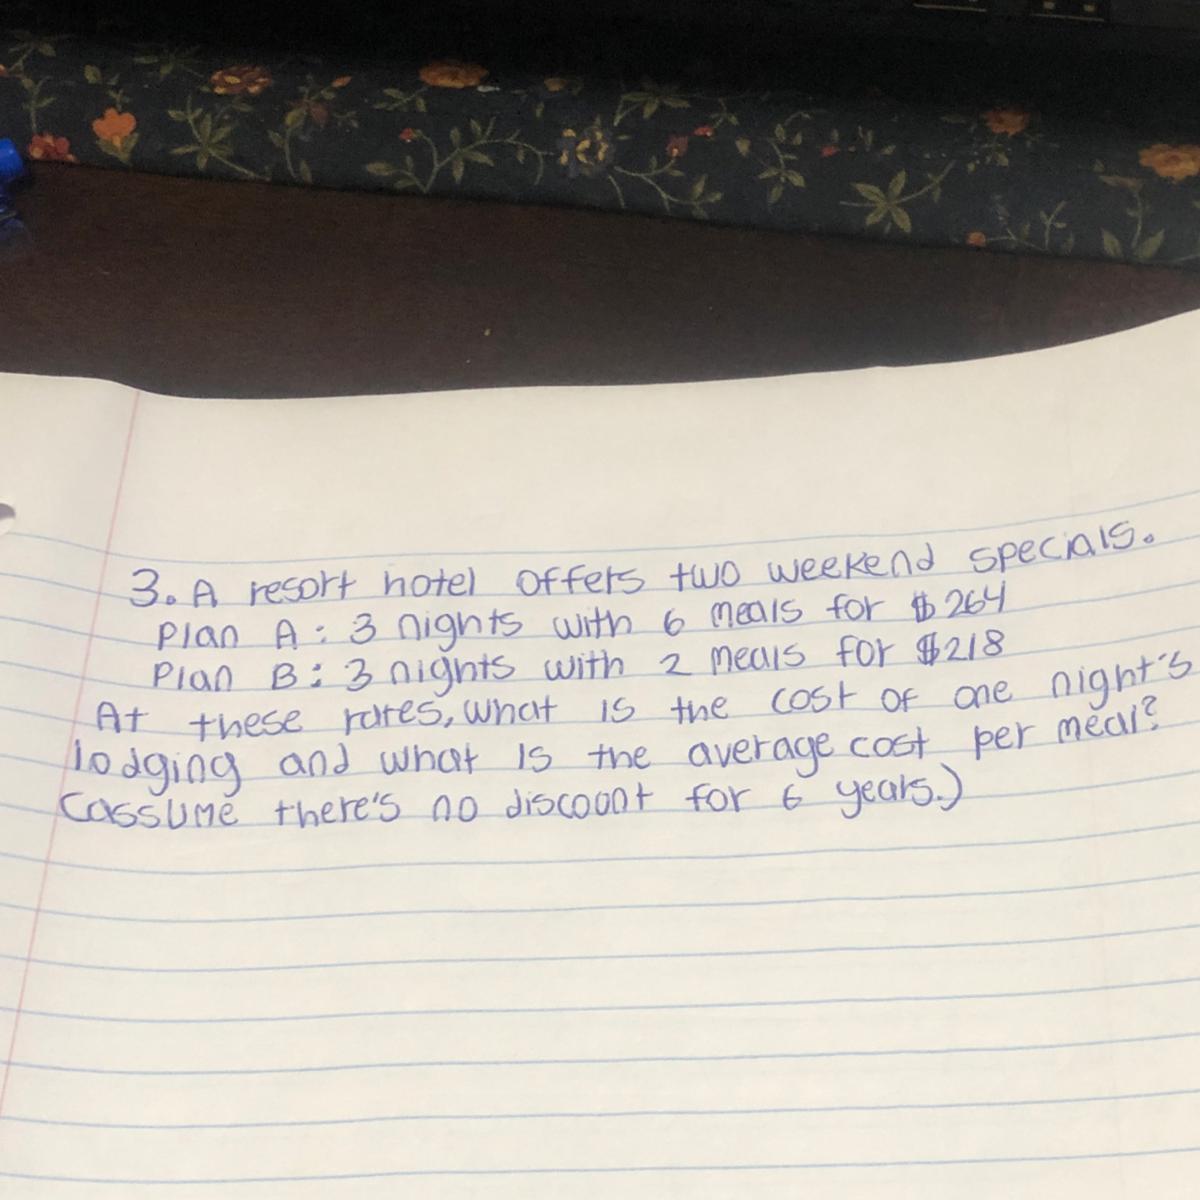 3. A resort hotel offers two weekend specials.
Plan A: 3 nights with 6 meals for $264
Plan B: 3 nights with 2 meals for $218
At these rates, what is the cost of one night's
lodging and what is the average cost per meal?
(assume there's no discount for 6 years.)